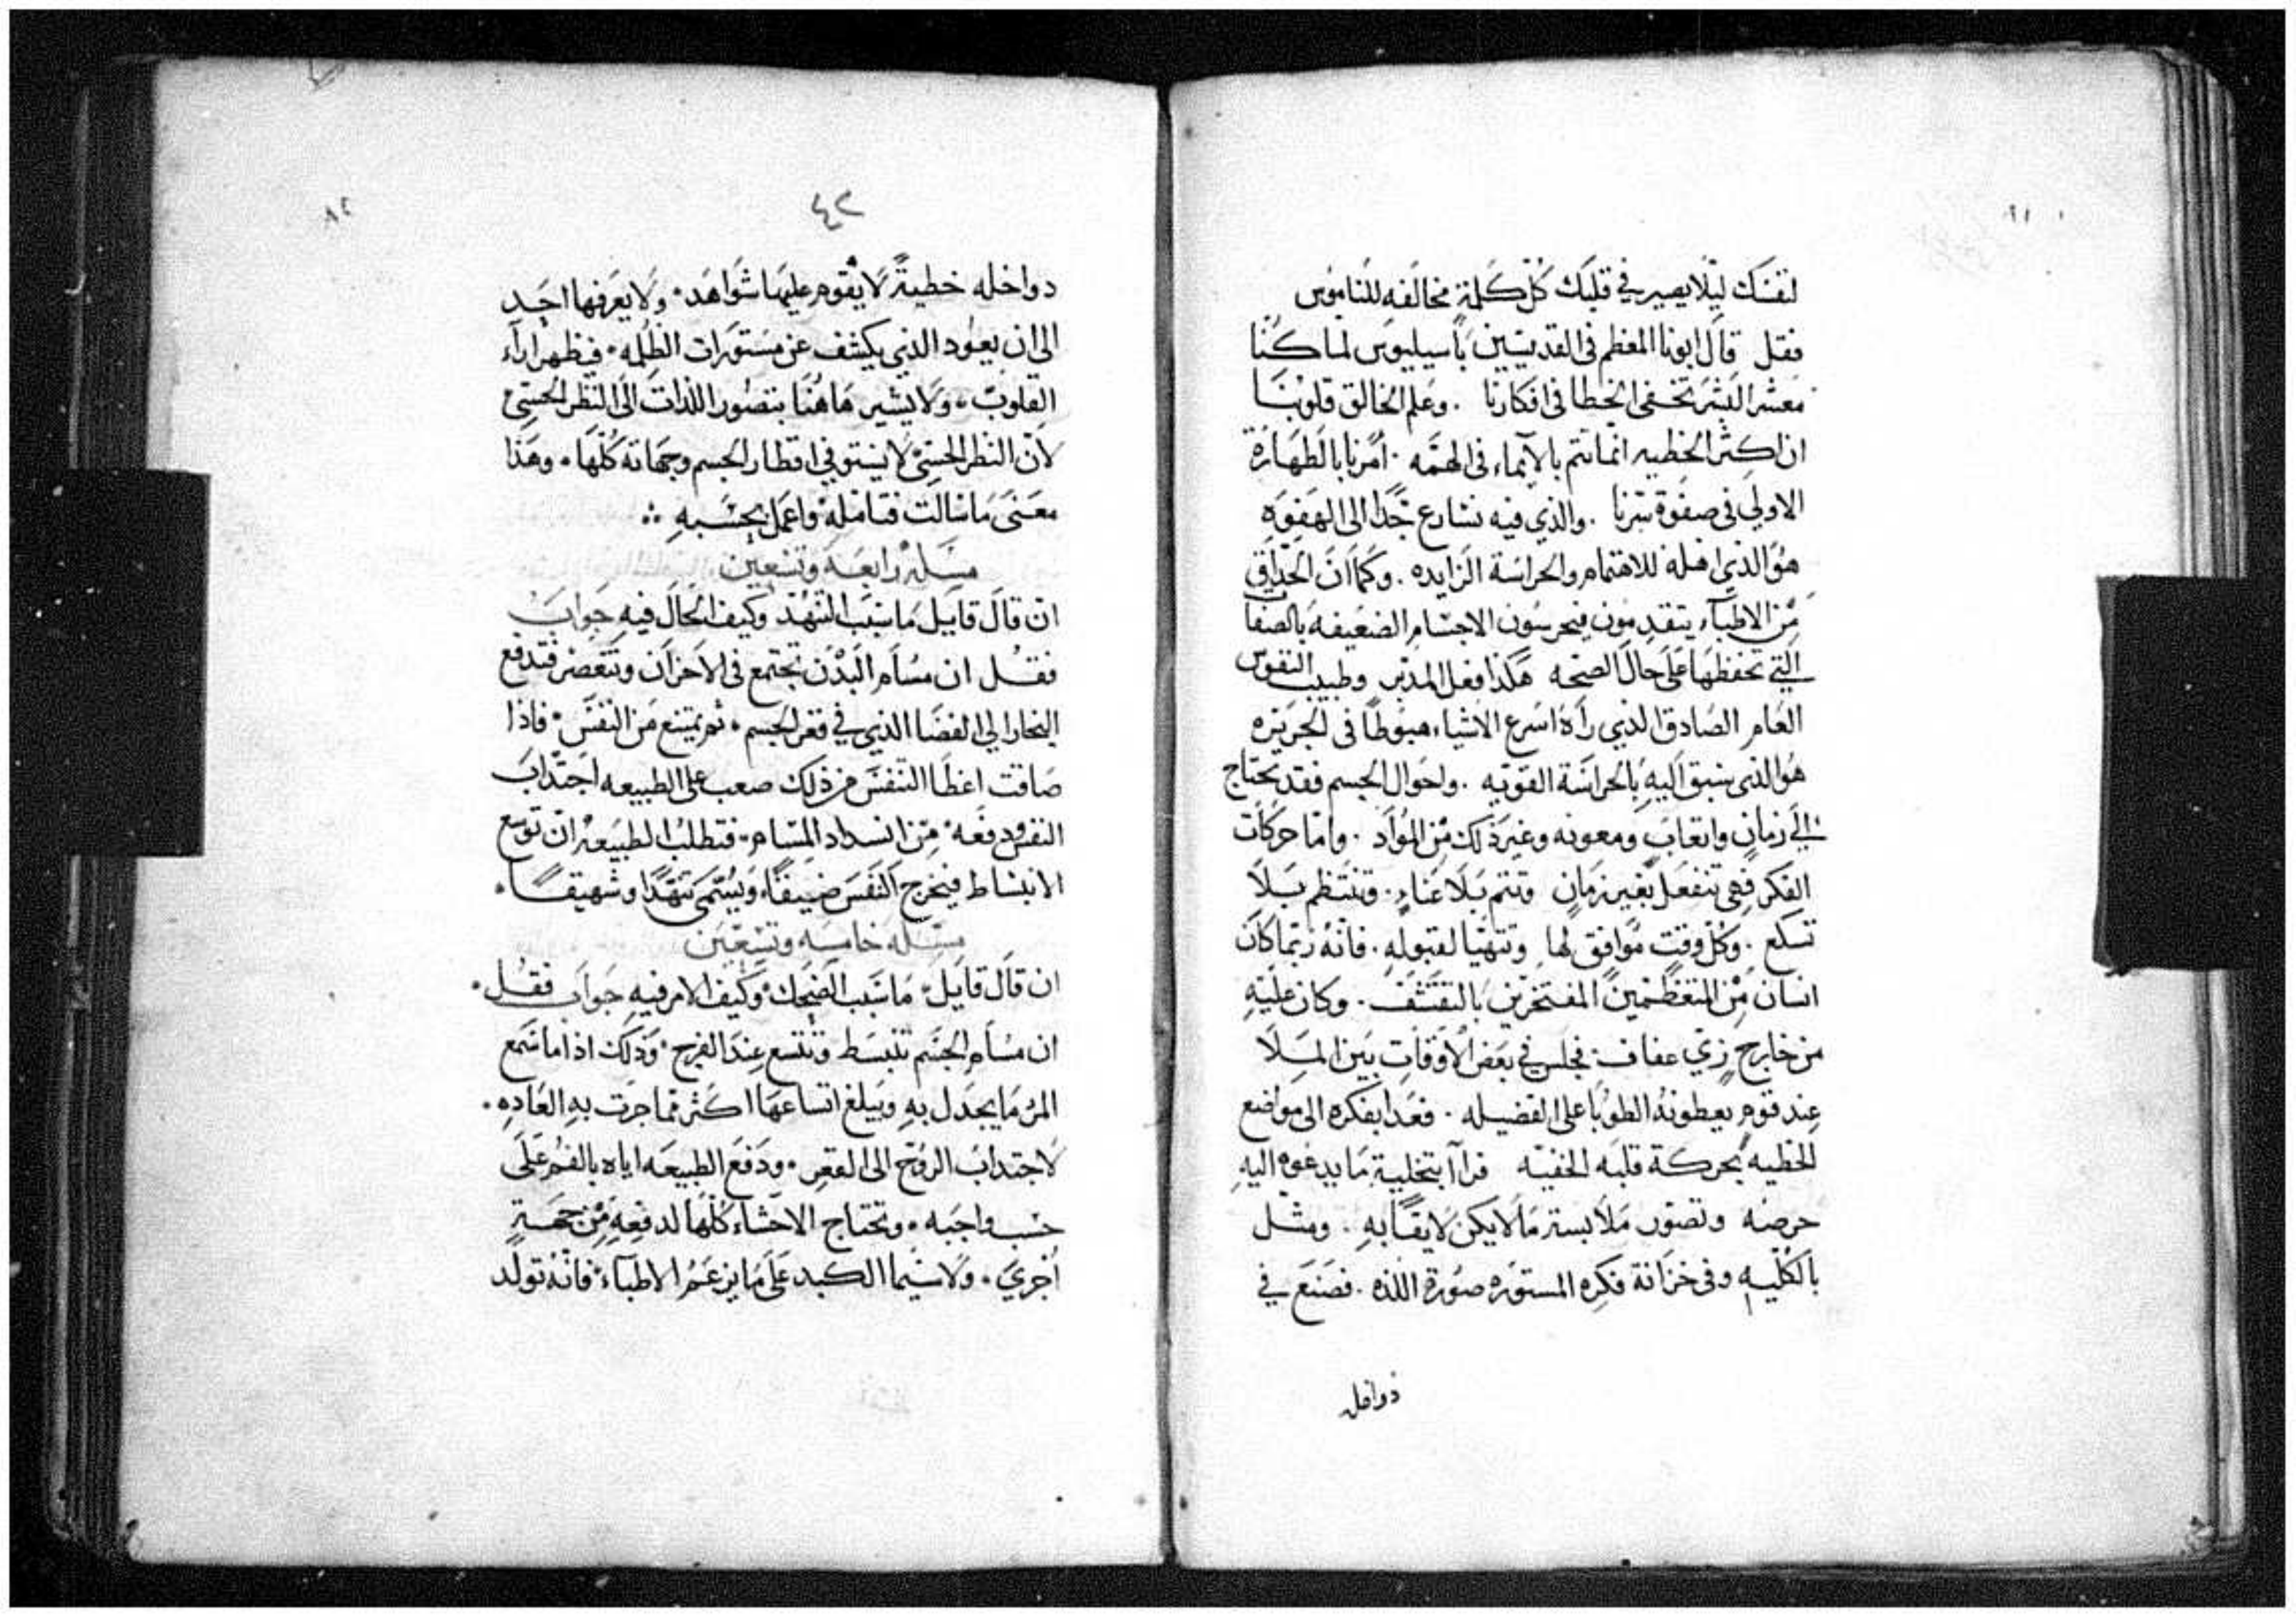 لنفسك ليلا يصير في قلبك كل كلمة مخالفه للناموس
فقل قال ابونا المعظم في القديسين باسيليوس لما كنا
معشر البشر تخفى الخطا في افكارنا . وعلم الخالق قلوبنا
ان اكثر الخطيه انما تتم بالايماء في الهمه . امرنا بالطهارة
الاولي في صفوة سرنا . والذي فيه نسارع جدا الى الهفوه
هو الذي اهله للاهتمام والحراسة الزايده . وكما ان الحذاق
من الاطباء يتقدمون فيحرسون الاجسام الضعيفه بالصفا
التي تحفظها على حال الصحه هكذا فعل المدبر وطبيب النفوس
العام الصادق الذي راه اسرع الاشياء هبوطا في الجريره
هو الذي سبق اليه بالحراسة القويه . واحوال الجسم فقد تحتاج
الي زمان واتعاب ومعونه وغير ذلك من المواد . واما حركات
الفكر فهي تنفعل بغير زمان وتتم بلا عناء . وتنتظم بلا
تسكع . وكل وقت موافق لها وتتهيا لقبوله . فانه ربما كان
انسان من المتعظمين المفتخرين بالتقشف . وكان عليه
من خارج زي عفاف . فجلس في بعض الاوقات بين الملا
عند قوم يعطونه الطوبا على الفضيله . فغدا بفكره الى مواضع
الخطيه بحركة قلبه الخفيه فراا بتخلية ما يدعوه اليه
حرصه وتصور ملابسة ما لا يكن لايقا به . ومثل
بالكليه وفي خزانة فكره المستوره صورة اللذه . فصنع في
دواخله
٤٢
٨٢
دواخله خطية لا يقوم عليها شواهد . ولا يعرفها احد
الى ان يعود الذي يكشف عن مستورات الظلمه . فيظهر اراء
القلوب . ولا يشير هاهنا بتصور اللذات الى النظر الحسي
لان النظر الحسي لا يستوفي اقطار الجسم وجهاته كلها . وهذا
معنى ما سالت فتامله واعمل بحسبه
مسله رابعه وتسعين
ان قال قايل ما سبب التنهد وكيف الحال فيه جواب
فقل ان مسام البدن تجتمع في الاحزان وتنعصر فتدفع
البخار الي الفضا الذي في قعر الجسم . ثم يمتنع من النفس . فاذا
ضاقت اعطا التنفس من ذلك صعب على الطبيعه اجتداب
النفس ودفعه من انسداد المسام . فتطلب الطبيعة ان توسع
الانبساط فيخرج النفس ضيقا ويسمى تنهدا وشهيقا .
مسله خامسه وتسعين
ان قال قايل ما سبب الضحك وكيف الامر فيه جواب فقل .
ان مسام الجسم تنبسط وتتسع عند الفرح . وذلك اذا ما سمع
المرء ما يجدل به ويبلغ اتساعها اكثر مما جرت به العاده .
لاجتداب الروح الى القعر . ودفع الطبيعه اياه بالفم على
حسب واجبه . وتحتاج الاحشاء كلها لدفعه من جهة
اخري . ولا سيما الكبد على ما يزعم الاطباء فانه تولد